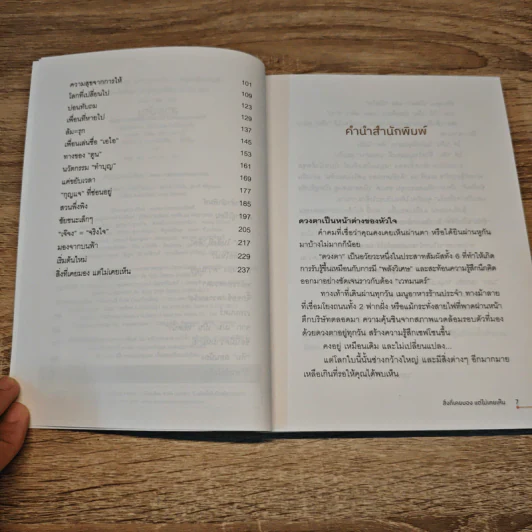 ความสุขจากการให้ 101
โลกที่เปลี่ยนไป 109
บ่อนทับถม 123
เพื่อนที่หายไป 129
ล้ม=รุก 137
เพื่อนเล่นชื่อ "เอไอ" 145
ทางของ "ฮูน" 153
นวัตกรรม "ทำบุญ" 161
แค่ขยับเวลา 169
"กุญแจ" ที่ซ่อนอยู่ 177
สวนพึ่งพิง 185
ชัยชนะเล็กๆ 197
"เจ๊จง" = "จริงใจ" 205
มองจากบนฟ้า 217
เริ่มต้นใหม่ 229
สิ่งที่เคยมอง แต่ไม่เคยเห็น 237
คำนำสำนักพิมพ์
ดวงตาเป็นหน้าต่างของหัวใจ
คำคมที่เชื่อว่าคุณคงเคยเห็นผ่านตา หรือได้ยินผ่านหูกัน
มาบ้างไม่มากก็น้อย
"ดวงตา" เป็นอวัยวะหนึ่งในประสาทสัมผัสทั้ง 6 ที่ทำให้เกิด
การรับรู้ขึ้นเหมือนกับการมี "พลังวิเศษ" และสะท้อนความรู้สึกนึกคิด
ออกมาอย่างชัดเจนราวกับต้อง "เวทมนตร์"
ทางเท้าที่เดินผ่านทุกวัน เมนูอาหารร้านประจำ ทางม้าลาย
ที่เชื่อมโยงถนนทั้ง 2 ฟากฝั่ง หรือแม้กระทั่งสายไฟที่พาดผ่านหน้า
ตึกบริษัทตลอดมา ความคุ้นชินจากสภาพแวดล้อมรอบตัวที่มอง
ด้วยดวงตาอยู่ทุกวัน สร้างความรู้สึกเซฟโซนขึ้น
คงอยู่ เหมือนเดิม และไม่เปลี่ยนแปลง...
แต่โลกใบนี้นั้นช่างกว้างใหญ่ และมีสิ่งต่างๆ อีกมากมาย
เหลือเกินที่รอให้คุณได้พบเห็น
สิ่งที่เคยมอง แต่ไม่เคยเห็น 7